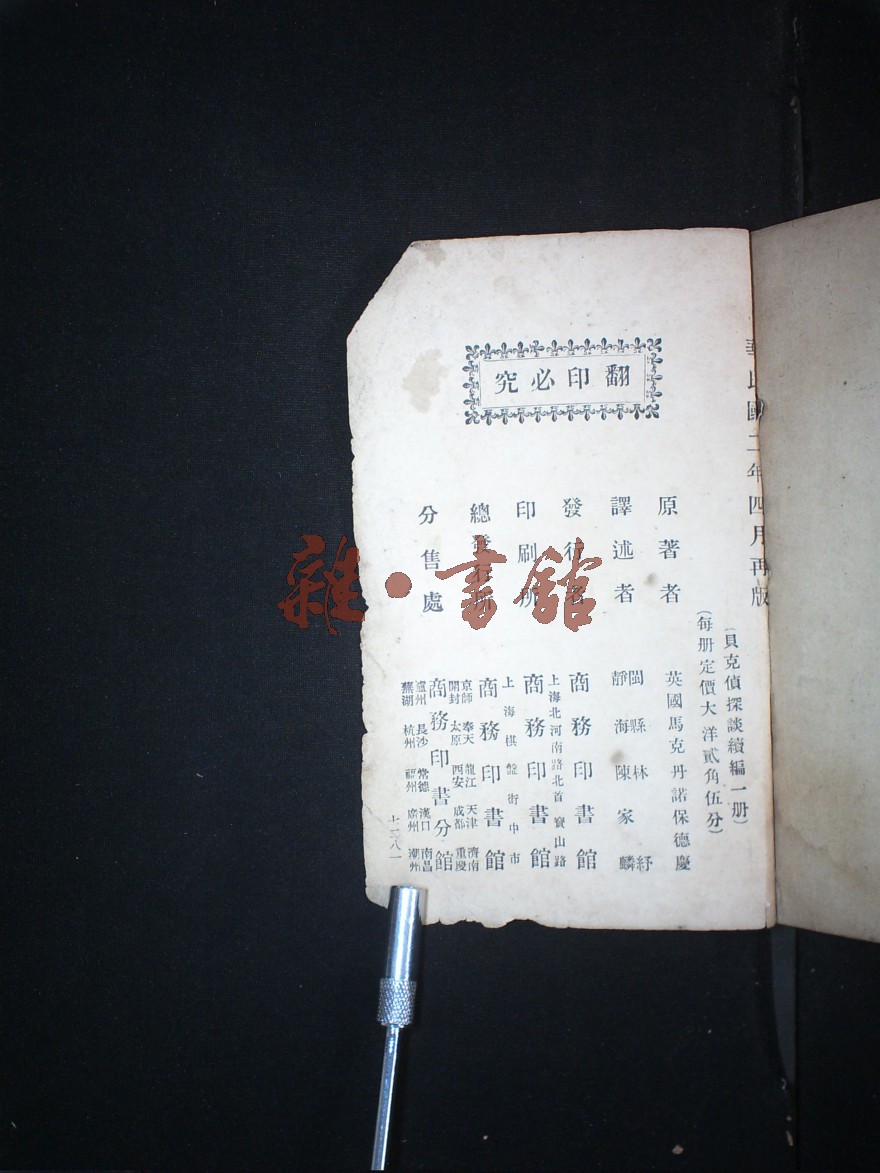 翻印必究
華民國二年四月再版
(貝克偵探談續編一册)
(每册定價大洋貳角伍分)
原著者 英國馬克丹諾保德慶
譯述者 閩縣林紓
靜海陳家麟
發行者 商務印書館
上海北河南路北首寶山路
印刷所 商務印書館
上海棋盤街中市
總發行所 商務印書館
京師 奉天 龍江 天津 濟南
開封 太原 西安 成都 重慶
分售處 商務印書分館
瀘州 長沙 常德 漢口 南昌
蕪湖 杭州 福州 廣州 潮州
雜·書館